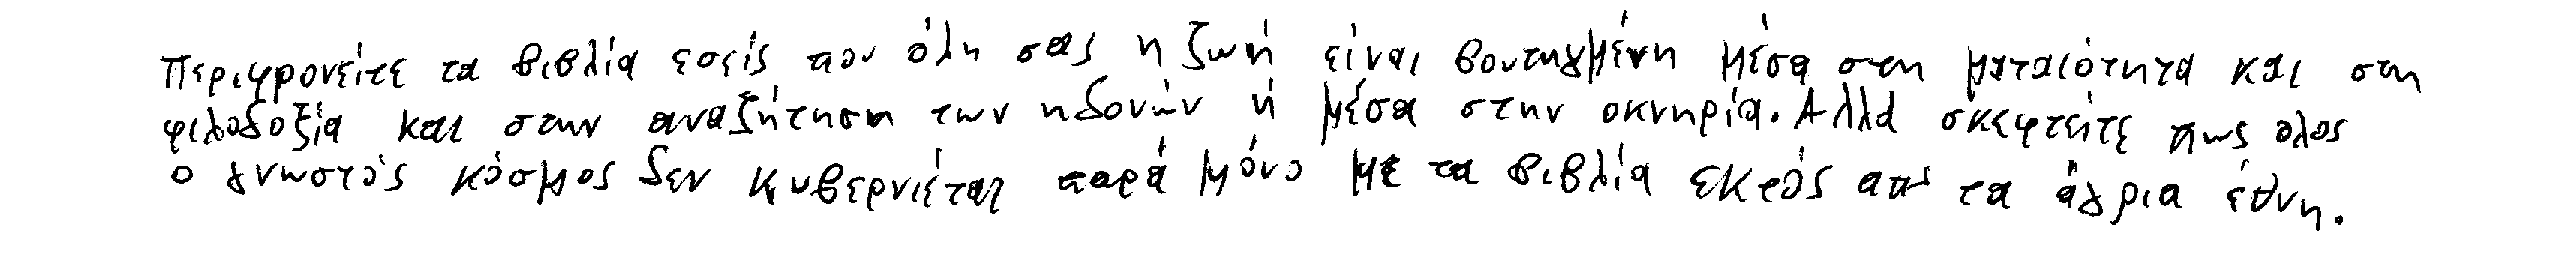 Περιφρονείτε τα βιβλία εσείς που όλη σας η ζωή είναι βουτηγμένη μέσα στη ματαιότητα και στη
φιλοδοξία και στην αναζήτηση των ηδονών ή μέσα στην οκνηρία. Αλλά σκεφτείτε πως όλος
ο γνωστός κόσμος δεν κυβερνιέται παρά μόνο με τα βιβλία εκτός από τα άγρια έθνη.